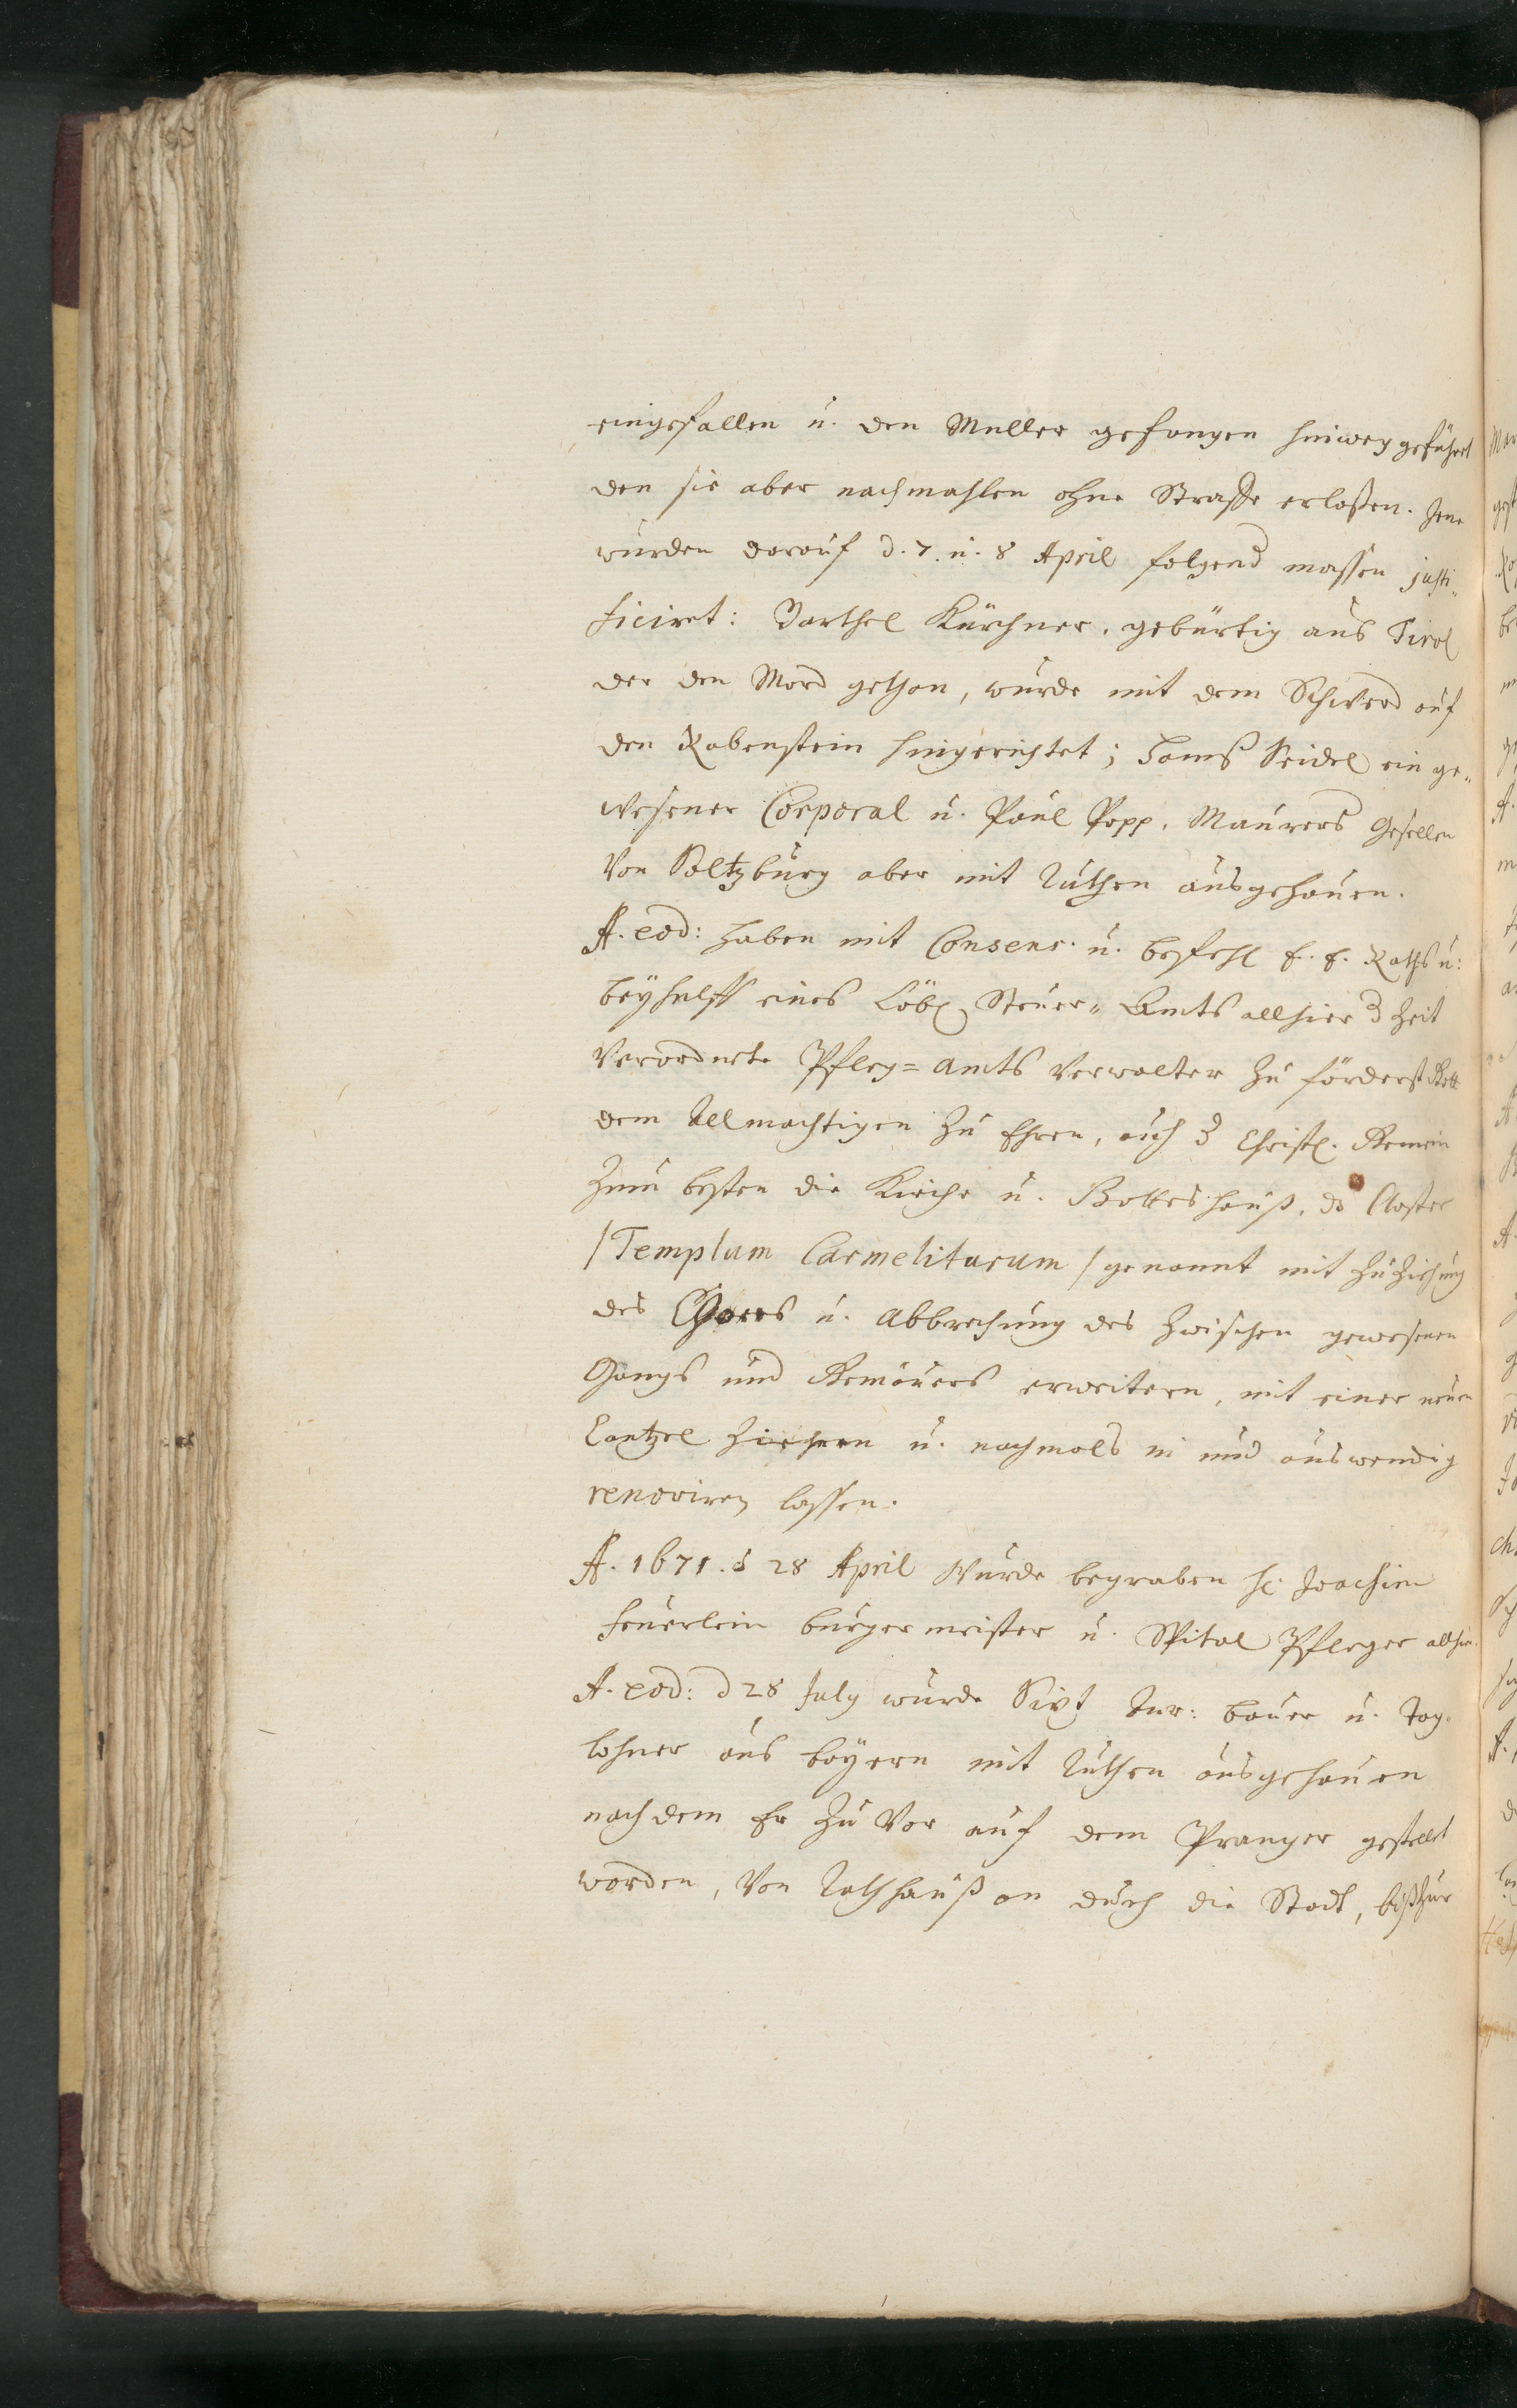 eingefallen u. den Muller gefangen hinweg geführt
den sie aber nachmahlen ohne Straffe erlaßen. Jene
wurden darauf d. 7. u. 8 April folgend massen justi„
ficiret: Barthel Kürchner, gebürtig aus Tirol
der den Mord gethan, wurde mit dem Schwerd auf
den Rabenstein hingerichtet; Hanß Seidel ein ge„
wesener Corporal u. Paul Popp, Maurers Gesellen
von Saltzburg aber mit Ruthen ausgehauen.
A. eod: haben mit Consens. u. befehl E. E. Raths u:
beyhülff eines Löbl. Steuer„ Amts allhier d Zeit
verordnete Pfleg= amts Verwalter zu förderst Gott
dem Allmachtigen zu Ehren, auch d Christl. Gemein
zum besten die Kirche u. Gotteshauß, ds Closter
/Templum Carmelitarum/ genannt mit zuziehung
des Chores u. abbrechung des zwischen gewesenen
Gangs und Gemäuers erweitern, mit einer neuen
Cantzel ziehren u. nachmals in und auswendig
renoviren lassen.
A. 1671. d 28 April wurde begraben H. Joachim
Feuerlein burgermeister u. Spital Pfleger allhie.
A. eod: d 28 July wurde Sixt bauer u. Tag„
lohner aus bayern mit Ruthen ausgehauen
nach dem Er zu vor auf dem Pranger gestellt
worden, von Rathhauß an durch die Stadt, biß zur